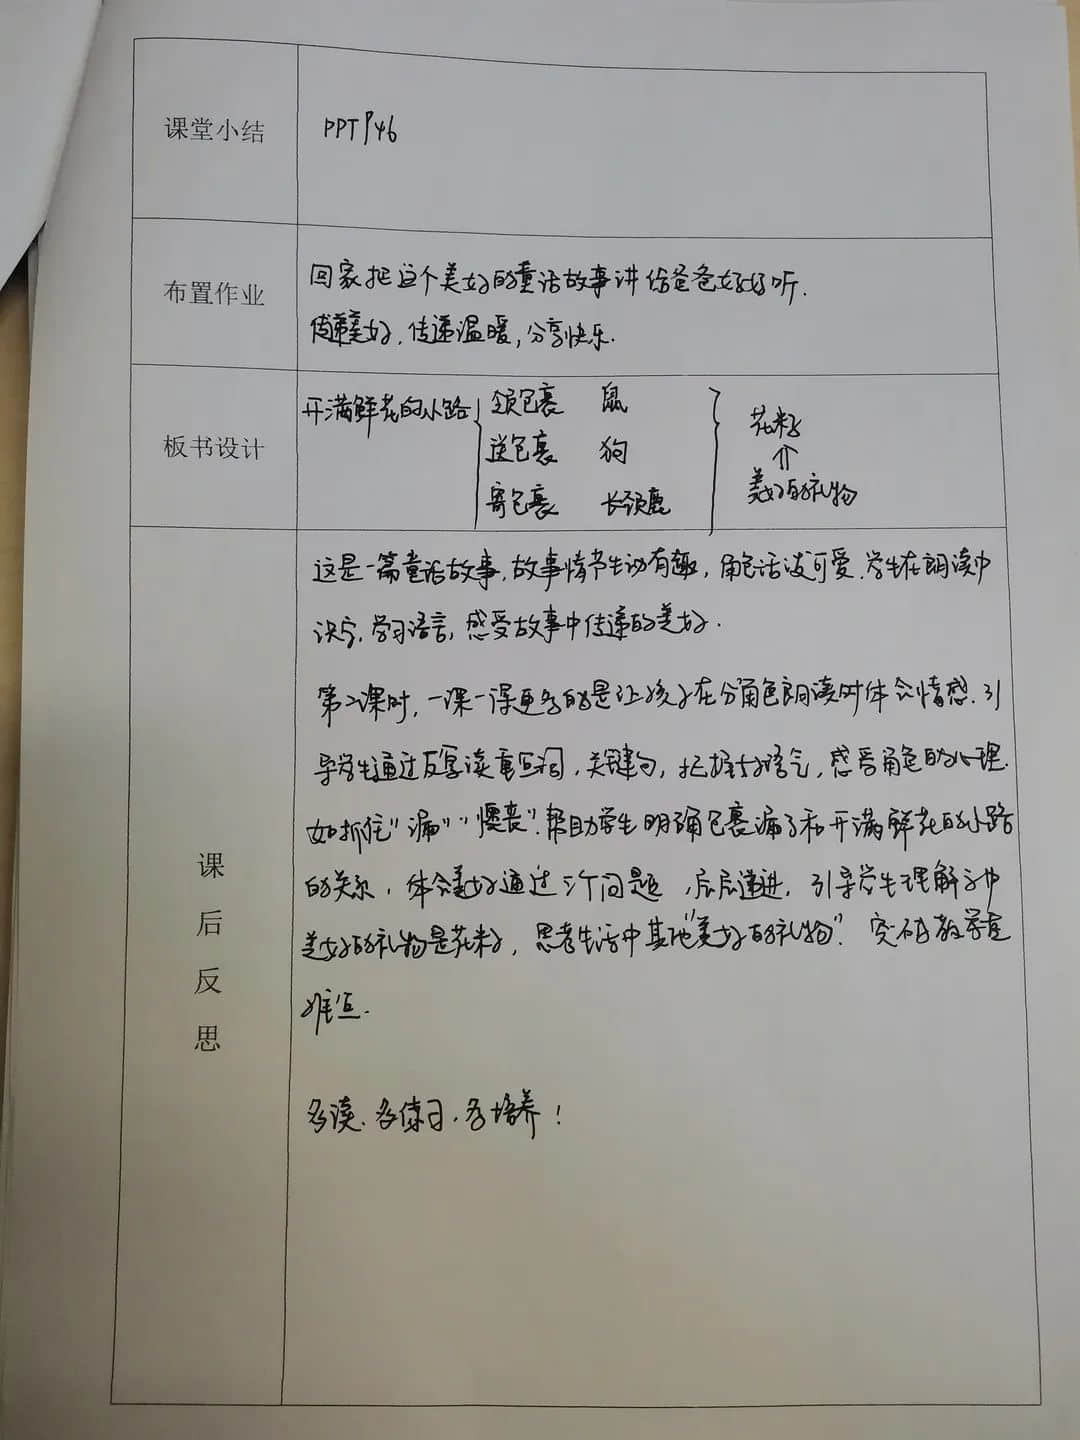 课堂小结
PPT P46
布置作业
回家把这个美好的童话故事讲给爸爸妈妈听.
传递美好,传递温暖,分享快乐.
板书设计
开满鲜花的小路
领包裹 鼠
送包裹 狗
寄包裹 长颈鹿
花籽
⇑
美好的礼物
课后反思
这是一篇童话故事,故事情节生动有趣,角色活泼可爱.学生在朗读中
识字,学习语言,感受故事中传递的美好.
第二课时,一课一得更多的是让孩子在分角色朗读时体会情感.引
导学生通过反复读重点词,关键句,把握好语气,感受角色的心理.
如抓住"漏""懊丧".帮助学生明确包裹漏了和开满鲜花的小路
的关系,体会美好通过三个问题,层层递进,引导学生理解文中
美好的礼物是花籽,思考生活中其他"美好的礼物".突破教学重
难点.
多读.多练习.多培养!